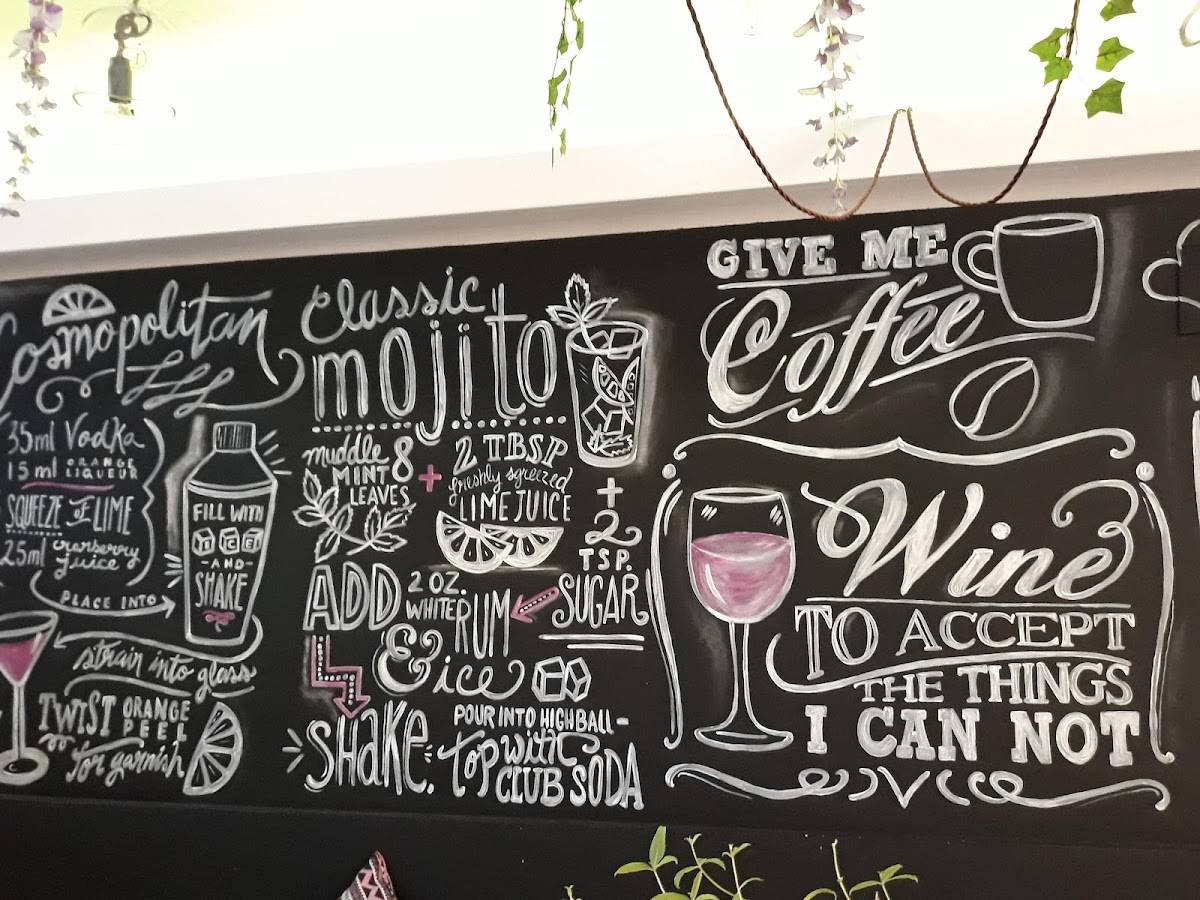 Cosmopolitan
35ml Vodka
15ml ORANGE LIQUEUR
SQUEEZE OF LIME
25ml cranberry juice
PLACE INTO
FILL WITH
ICE
-AND-
SHAKE
strain into glass
TWIST ORANGE PEEL
for garnish
classic
mojito
muddle 8
MINT
LEAVES
+
2 TBSP
freshly sqreezed
LIME JUICE
+
2
TSP.
SUGAR
ADD 2 OZ. WHITE RUM
& ice
SHAKE.
POUR INTO HIGHBALL-
top with
CLUB SODA
GIVE ME
Coffee
Wine
TO ACCEPT
THE THINGS
I CAN NOT